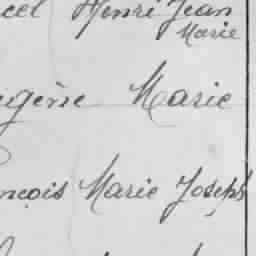 cel Henri Jean
Marie
ugène Marie
nçois Marie Joseph